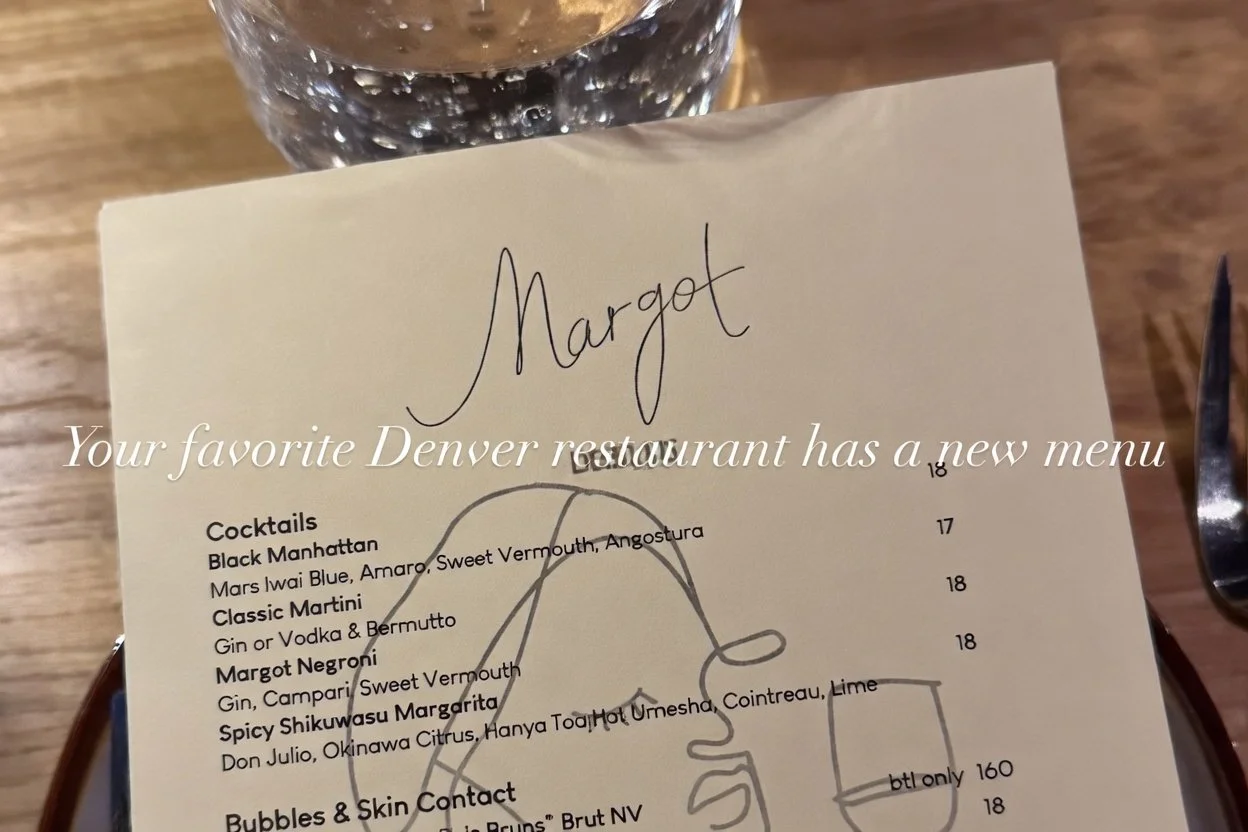 Margot
Your favorite Denver restaurant has a new menu
Cocktails
Black Manhattan 18
Mars Iwai Blue, Amaro, Sweet Vermouth, Angostura
Classic Martini 17
Gin or Vodka & Bermutto
Margot Negroni 18
Gin, Campari, Sweet Vermouth
Spicy Shikuwasu Margarita 18
Don Julio, Okinawa Citrus, Hanya Toa,Hot Umesha, Cointreau, Lime
Bubbles & Skin Contact
btl only 160
Bruns" Brut NV 18